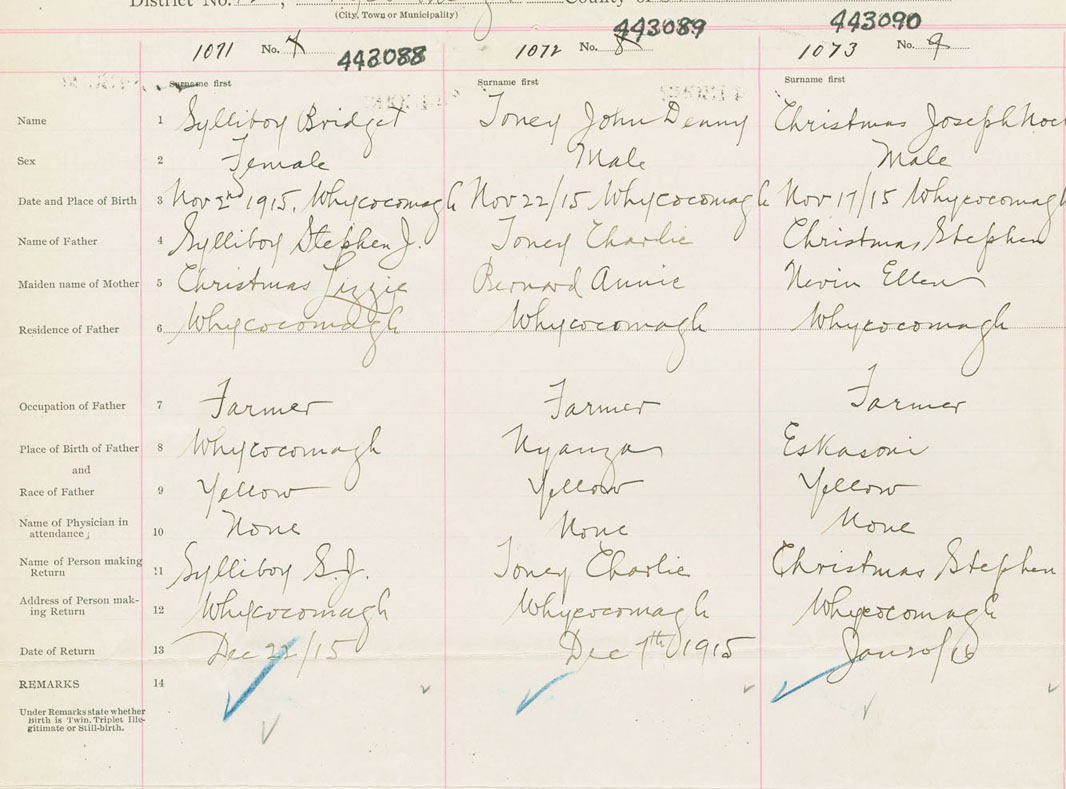 District No. County of
(City, Town or Municipality)
443089 443090
1071 No. 7 443088 1072 No. 8 1073 No. 9
Surname first Surname first Surname first
Name 1 Sylliboy Bridget Toney John Denny Christmas Joseph Noel
Sex 2 Female Male Male
Date and Place of Birth 3 Nov 2nd 1915, Whycocomagh Nov 22/15 Whycocomagh Nov 17/15 Whycocomagh
Name of Father 4 Sylliboy Stephen J. Toney Charlie Christmas, Stephen
Maiden name of Mother 5 Christmas Lizzie Bernard Annie Nevin Ellen
Residence of Father 6 Whycocomagh Whycocomagh Whycocomagh
Occupation of Father 7 Farmer Farmer Farmer
Place of Birth of Father 8 Whycocomagh Nyanza Eskasoni
and
Race of Father 9 Yellow Yellow Yellow
Name of Physician in
attendance; 10 None None None
Name of Person making
Return 11 Sylliboy S.J. Toney Charlie Christmas Stephen
Address of Person mak-
ing Return 12 Whycocomagh Whycocomagh Whycocomagh
Date of Return 13 Dec 22/15 Dec 7th 1915
REMARKS 14
Under Remarks state whether
Birth is Twin. Triplet Ille-
gitimate or Still-birth.